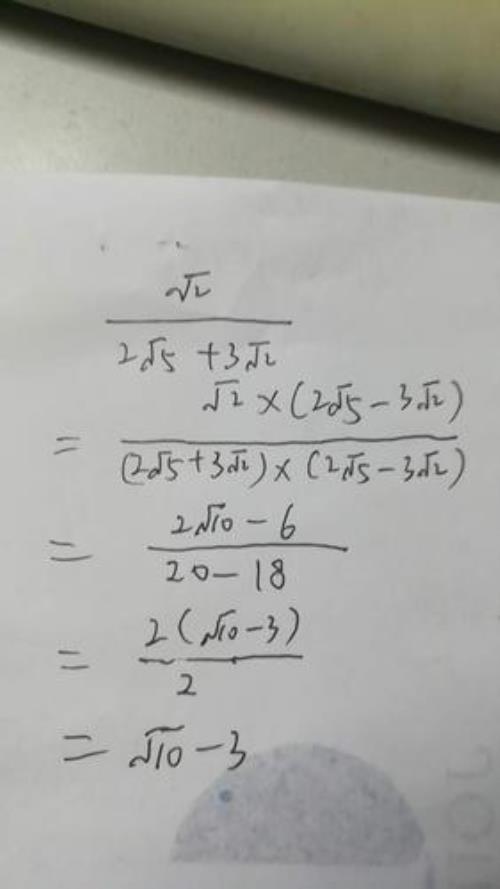 √2
2√5 +3√2
√2 ×(2√5-3√2)
= (2√5+3√2)×(2√5-3√2)
2√10-6
= 20-18
2(√10-3)
= 2
= √10-3